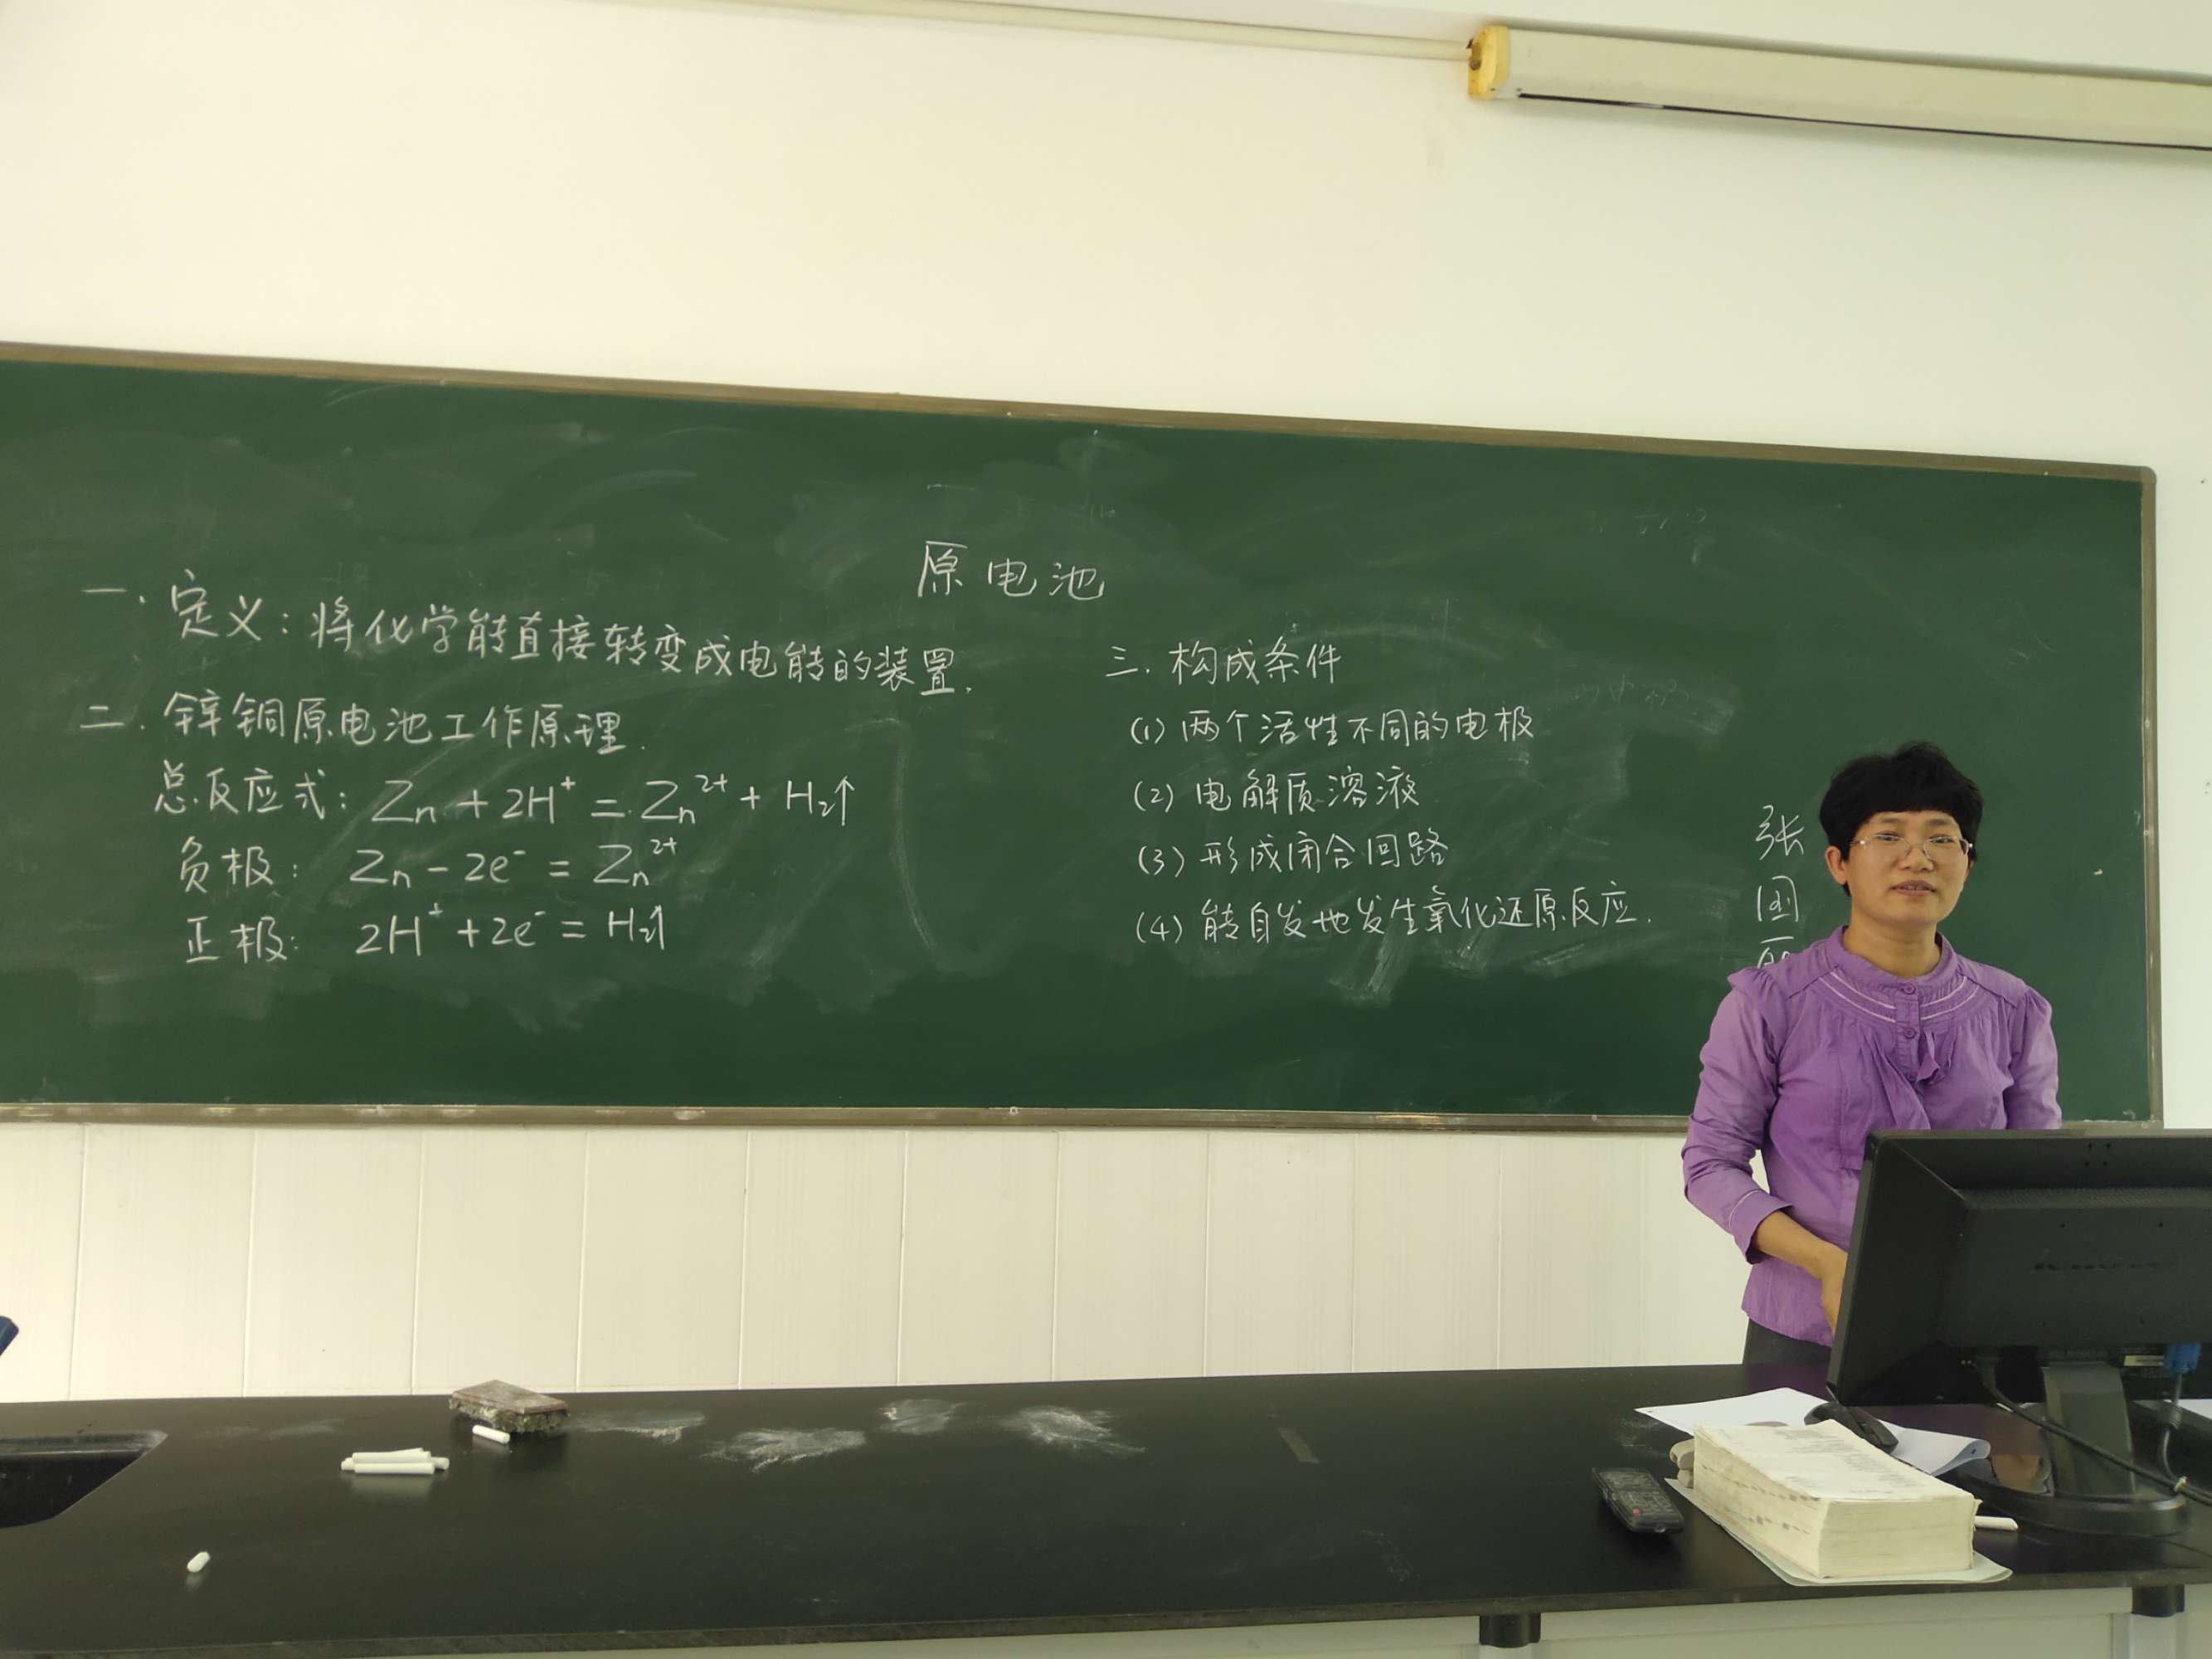 原电池
一. 定义：将化学能直接转变成电能的装置.
二. 锌铜原电池工作原理.
总反应式：Zn + 2H⁺ = Zn²⁺ + H₂↑
负极： Zn - 2e⁻ = Zn²⁺
正极： 2H⁺ + 2e⁻ = H₂↑
三. 构成条件
(1) 两个活性不同的电极
(2) 电解质溶液
(3) 形成闭合回路
(4) 能自发地发生氧化还原反应.
张
国